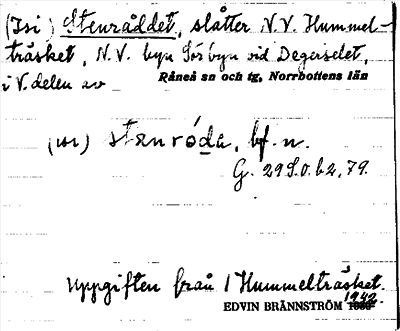 (Isi) Stenråddet, slåtter N.V. Hummel-
träsket, N.V. byn Sörbyn vid Degerselet,
i V. delen av Råneå sn och tg, Norrbottens län
(isi) stenróda, bf. n.
G. 29 S.O. b2, 79.
Uppgiften från 1 Hummelträsket.
EDVIN BRÄNNSTRÖM 1942.